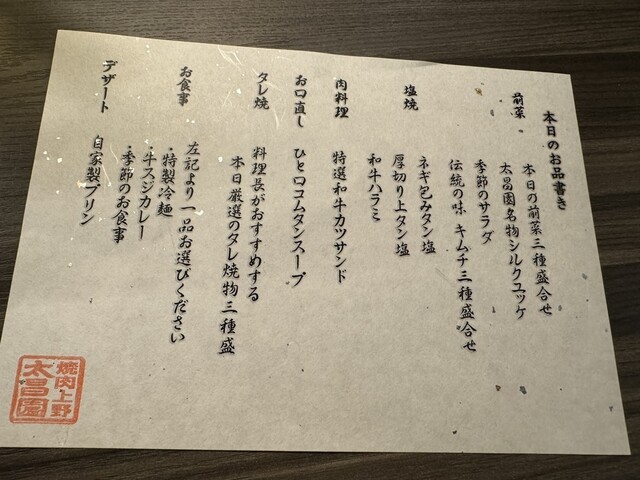 本日のお品書き
前菜
本日の前菜三種盛合せ
太昌園名物シルクユッケ
季節のサラダ
伝統の味 キムチ三種盛合せ
塩焼
ネギ包みタン塩
厚切り上タン塩
和牛ハラミ
肉料理
特選和牛カツサンド
お口直し
ひと口コムタンスープ
タレ焼
料理長がおすすめする
本日厳選のタレ焼物三種盛
お食事
左記より一品お選びください
・特製冷麺
・牛スジカレー
・季節のお食事
デザート
自家製プリン
焼肉上野
太昌園